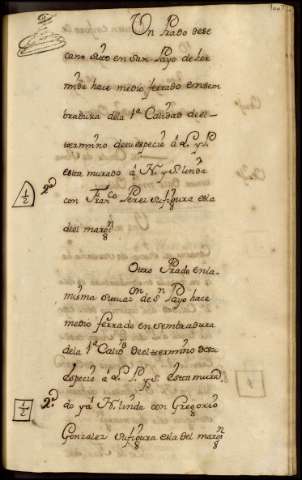 Un Prado dese
cano sito en San Payo de her
mide hace medio ferrado en sem
bradura dela 1ª Calidad de el
termino desu especie á L. y P.
esta murado á N. y S. linda
con Franco Perez su figura es la
del margn
1/2 2º
Otro Prado en la
misma de Sn Payo hace
medio ferrado en sembradura
dela 1ª Calid de el termino desu
especie á L. P. y S. esta mura
do y á N. linda con Gregorio
Gonzalez su figura es la del margn
1/2 2º